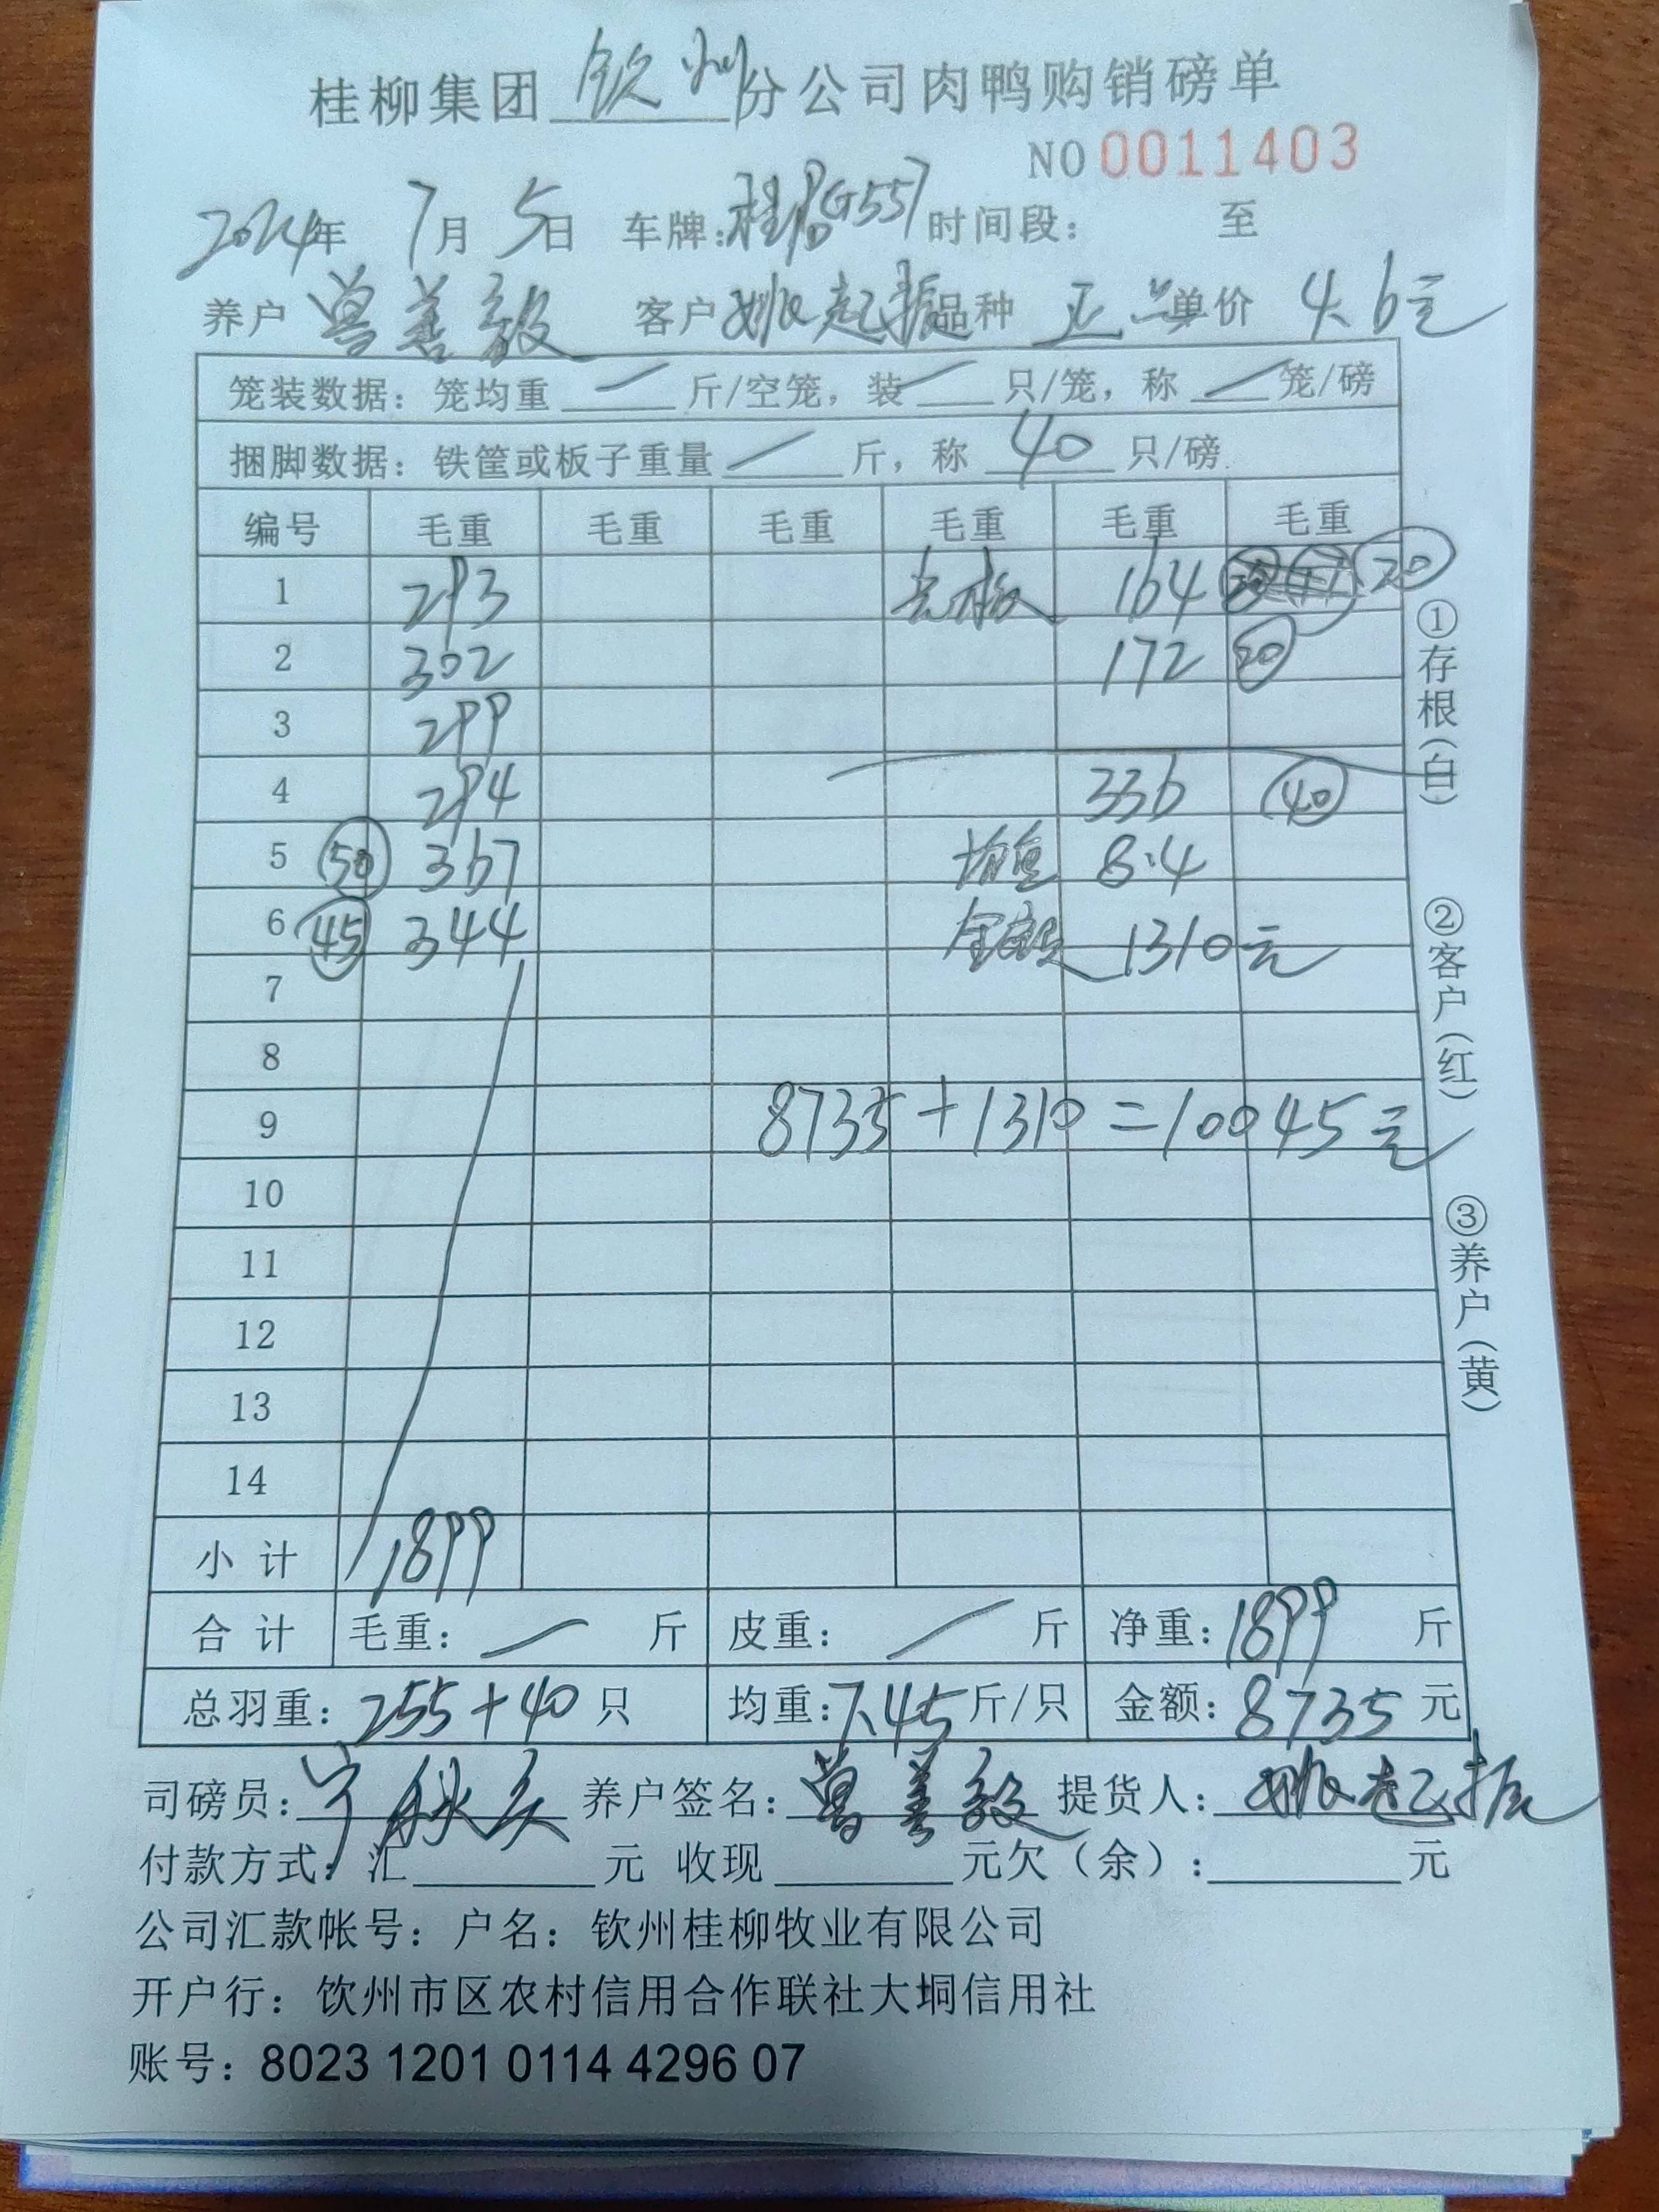 桂柳集团 钦州 分公司肉鸭购销磅单
NO 0011403
2024年 7月 5日 车牌: G557 时间段: 至
养户 曾善毅 客户 姚起振 品种 正品 单价 4.6元
笼装数据: 笼均重 — 斤/空笼, 装 — 只/笼, 称 — 笼/磅
捆脚数据: 铁筐或板子重量 — 斤, 称 40 只/磅
编号 毛重 毛重 毛重 毛重 毛重 毛重
1 293 164 20
2 302 172 20
3 299
4 294 336 40
5 50 367 均重 8.4
6 45 344 金额 1310元
7
8
9 8735+1310=10045元
10
11
12
13
14
小 计 1899
合 计 毛重: — 斤 皮重: — 斤 净重: 1899 斤
总羽重: 255+40 只 均重: 7.45 斤/只 金额: 8735 元
司磅员: 宁 养户签名: 曾善毅 提货人: 姚起振
付款方式: 汇 元 收现 元欠(余): 元
公司汇款帐号: 户名: 钦州桂柳牧业有限公司
开户行: 饮州市区农村信用合作联社大垌信用社
账号: 8023 1201 0114 4296 07
①存根(白)
②客户(红)
③养户(黄)